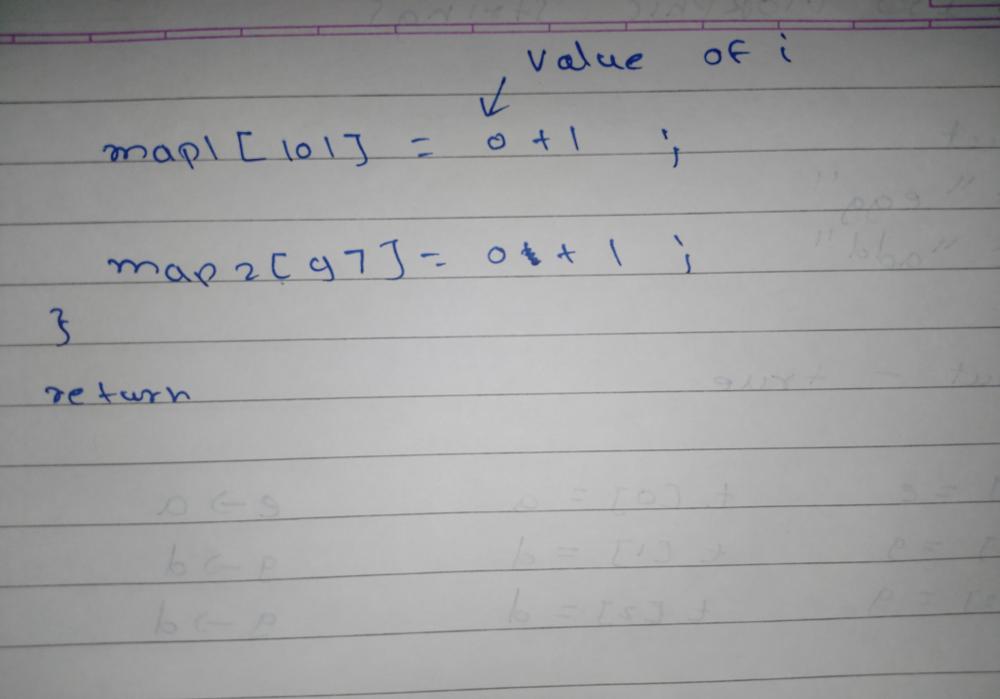 value of i
↙
map1 [101] = 0 + 1 ;
map2[97] = 0 + 1 ;
}
return